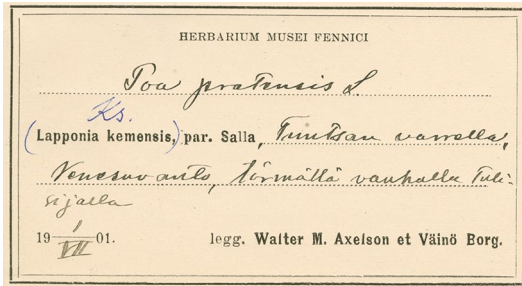 HERBARIUM MUSEI FENNICI
Poa pratensis L.
Ks.
(Lapponia kemensis,) par. Salla, Tuntsan varrella,
Venesuvanto, törmältä vanhalla tuli-
sijalla
19 1/VII 01. legg. Walter M. Axelson et Väinö Borg.